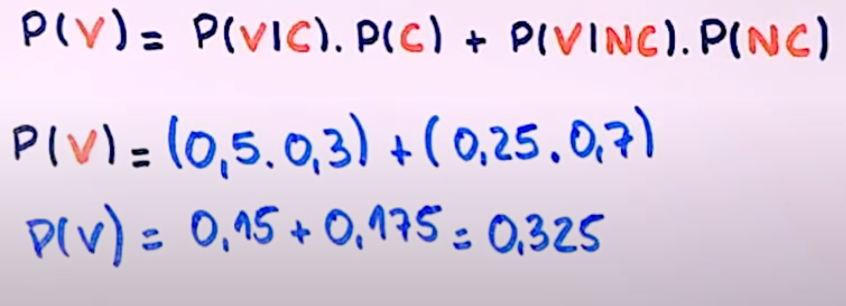 P(V) = P(V|C). P(C) + P(V|NC). P(NC)
P(V) = (0,5. 0,3) + (0,25. 0,7)
P(V) = 0,15 + 0,175 = 0,325